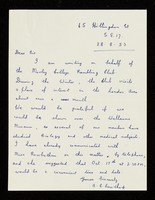 65 Hillingdon St
S.E.17.
28.9.53
Dear Sir
I am writing on behalf of
the Morley College Rambling Club.
During the Winter, the Club visits
a place of interest in the London area
about once a month.
We would be grateful if we
could be shown over the Wellcome
Museum, as several of our members have
studied Biology and other medical subjects.
I have already communicated with
Miss on the matter, by telephone,
and she suggested that Oct 17th at 2.30 p.m.
would be a convenient time and date
Yours Sincerely